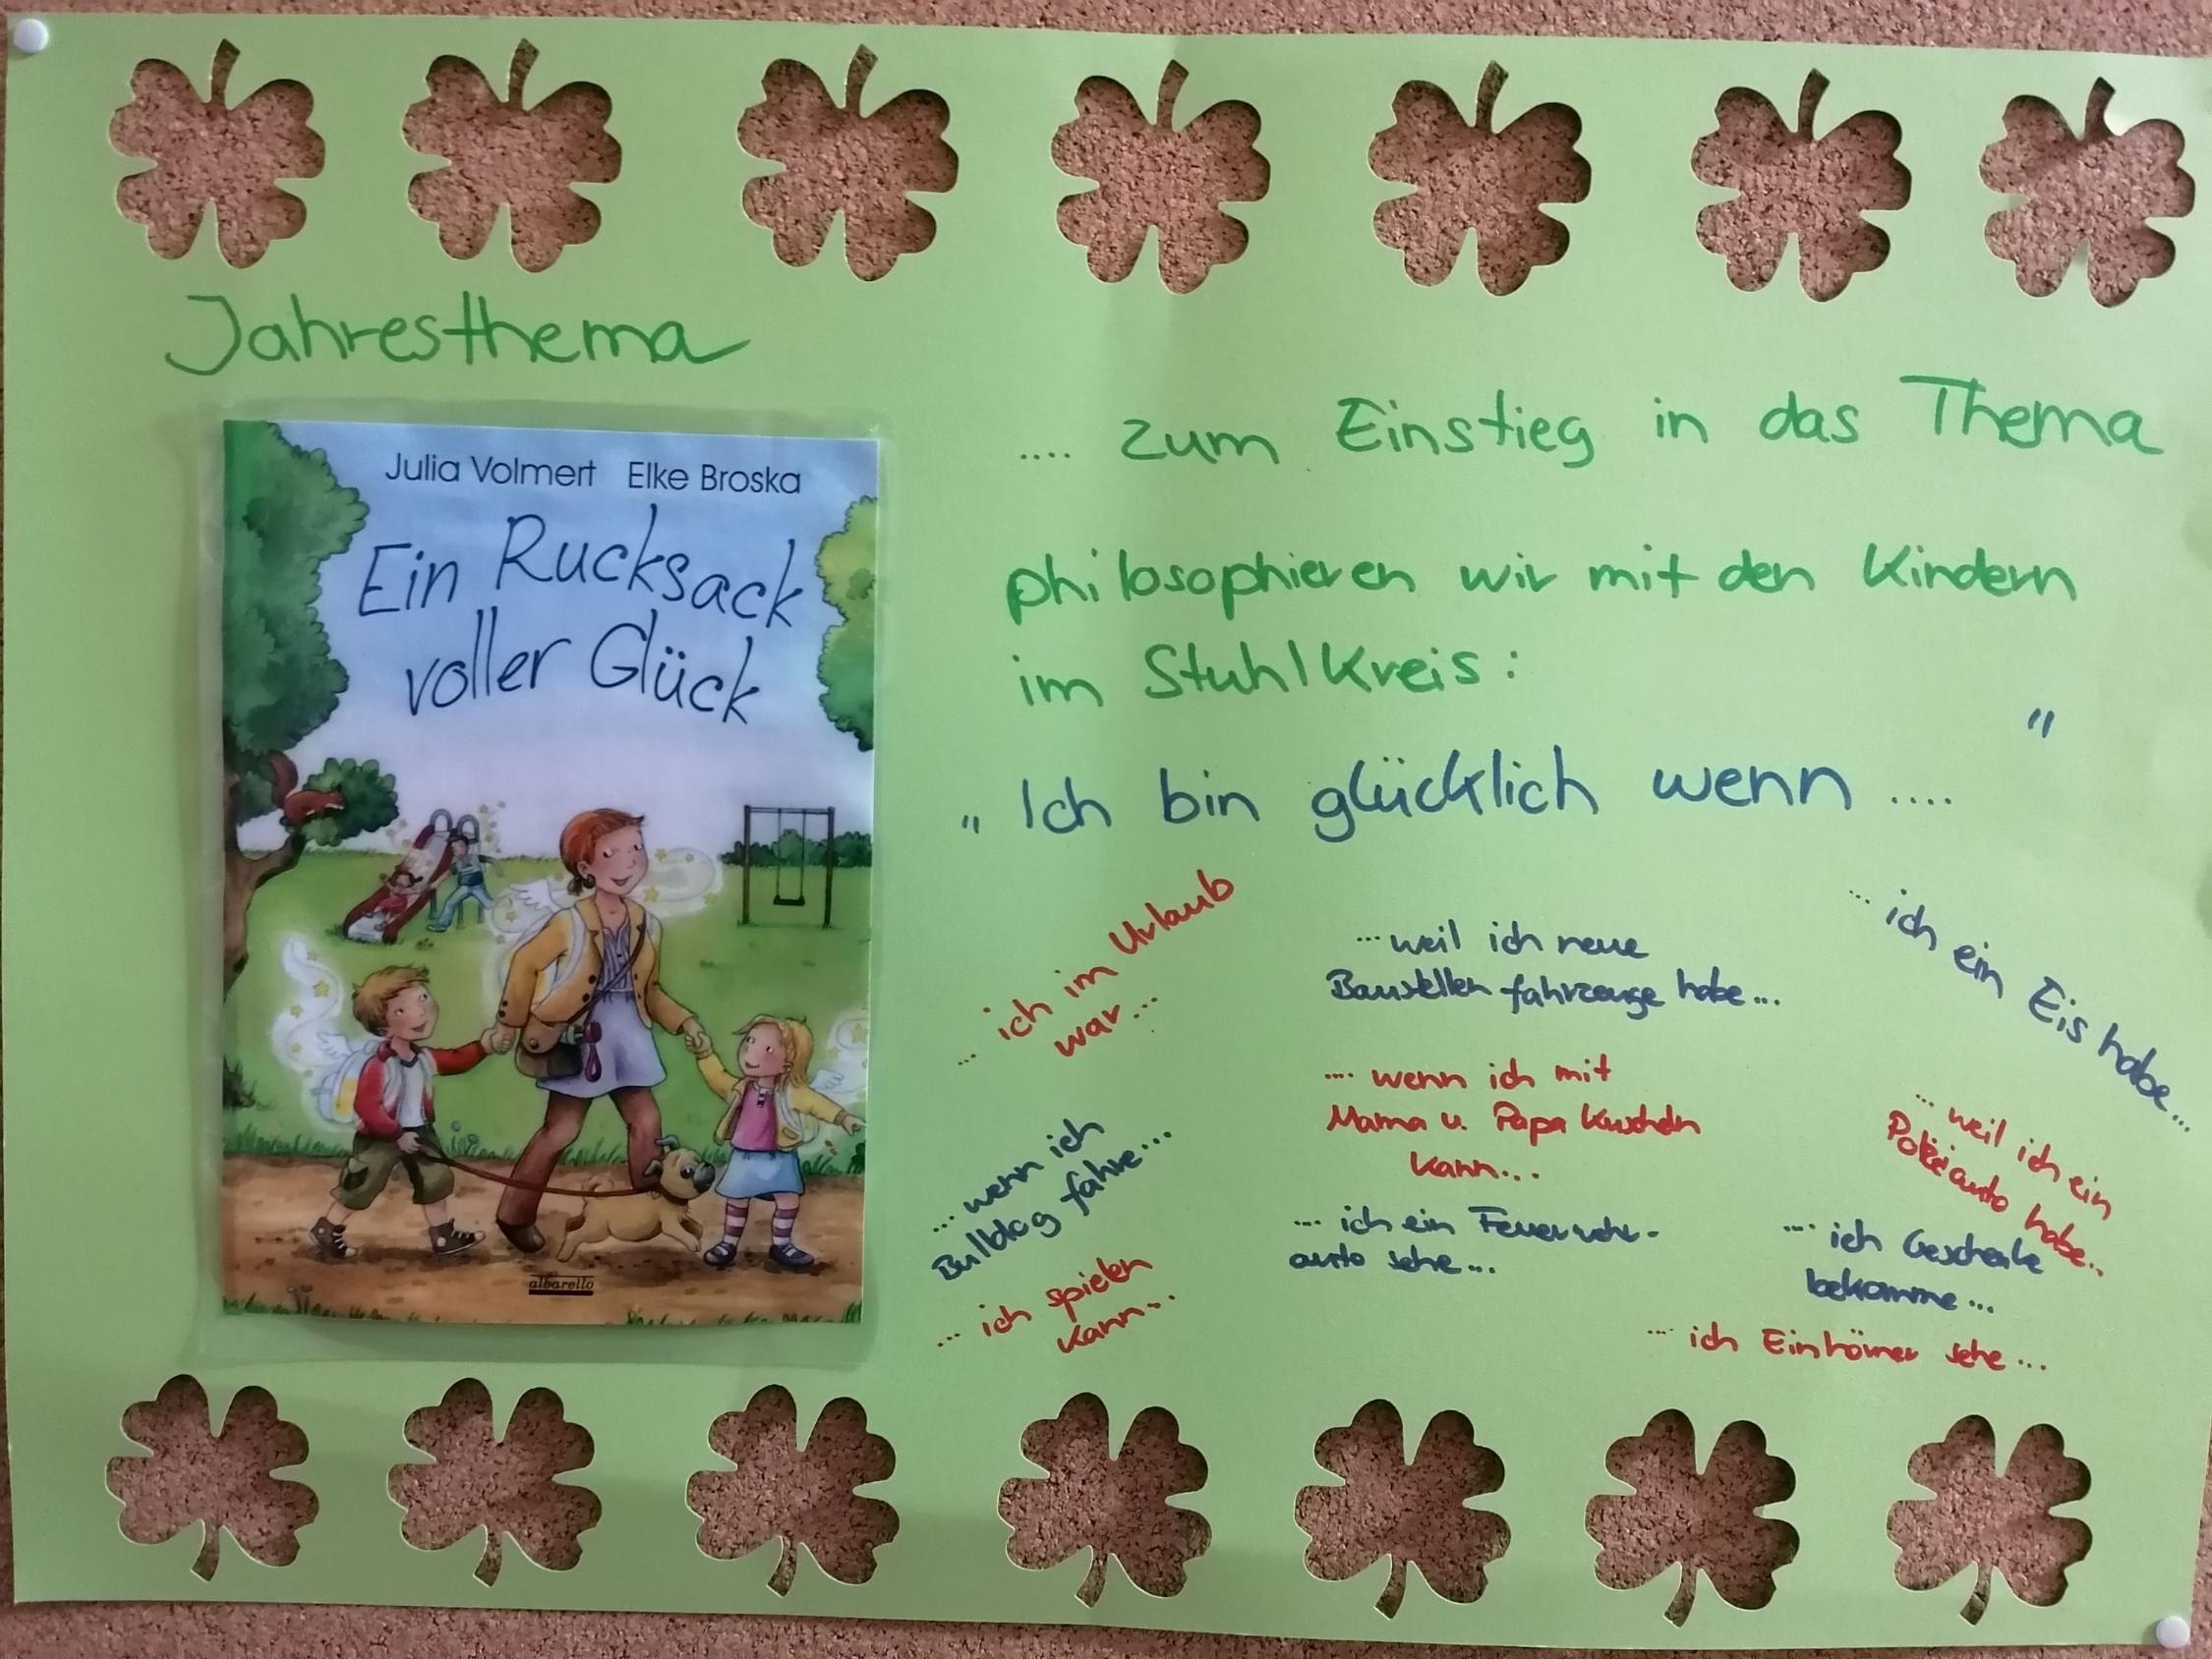 Jahresthema
Julia Volmert Elke Broska
Ein Rucksack
voller Glück
albarello
.... zum Einstieg in das Thema
philosophieren wir mit den Kindern
im Stuhlkreis:
„ Ich bin glücklich wenn .... "
... ich im Urlaub
war ...
... weil ich neue
Baustellen fahrzeuge habe ...
... ich ein Eis habe ...
.... wenn ich mit
Mama u. Papa Kuscheln
kann ...
... weil ich ein
Polizeiauto habe ...
... wenn ich
Bulldog fahre ....
... ich ein Feuerwehr-
auto sehe ...
.... ich Geschenke
bekomme ...
... ich spielen
kann ...
... ich Einhörner sehe ...